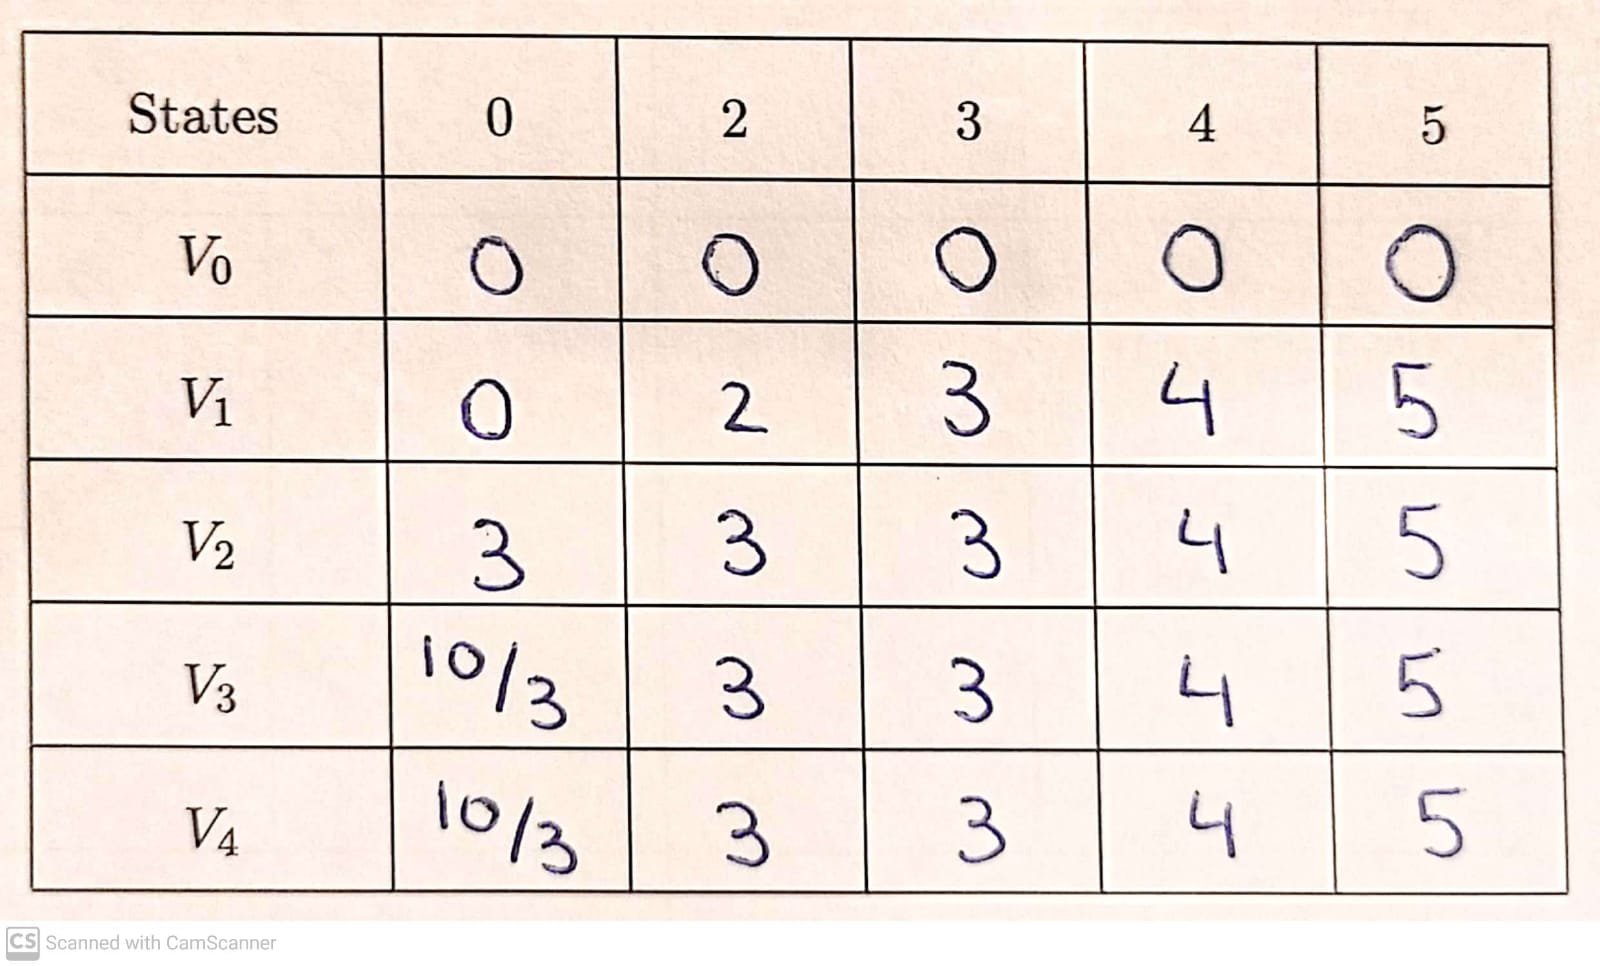 States 0 2 3 4 5
V0 0 0 0 0 0
V1 0 2 3 4 5
V2 3 3 3 4 5
V3 10/3 3 3 4 5
V4 10/3 3 3 4 5
CS Scanned with CamScanner